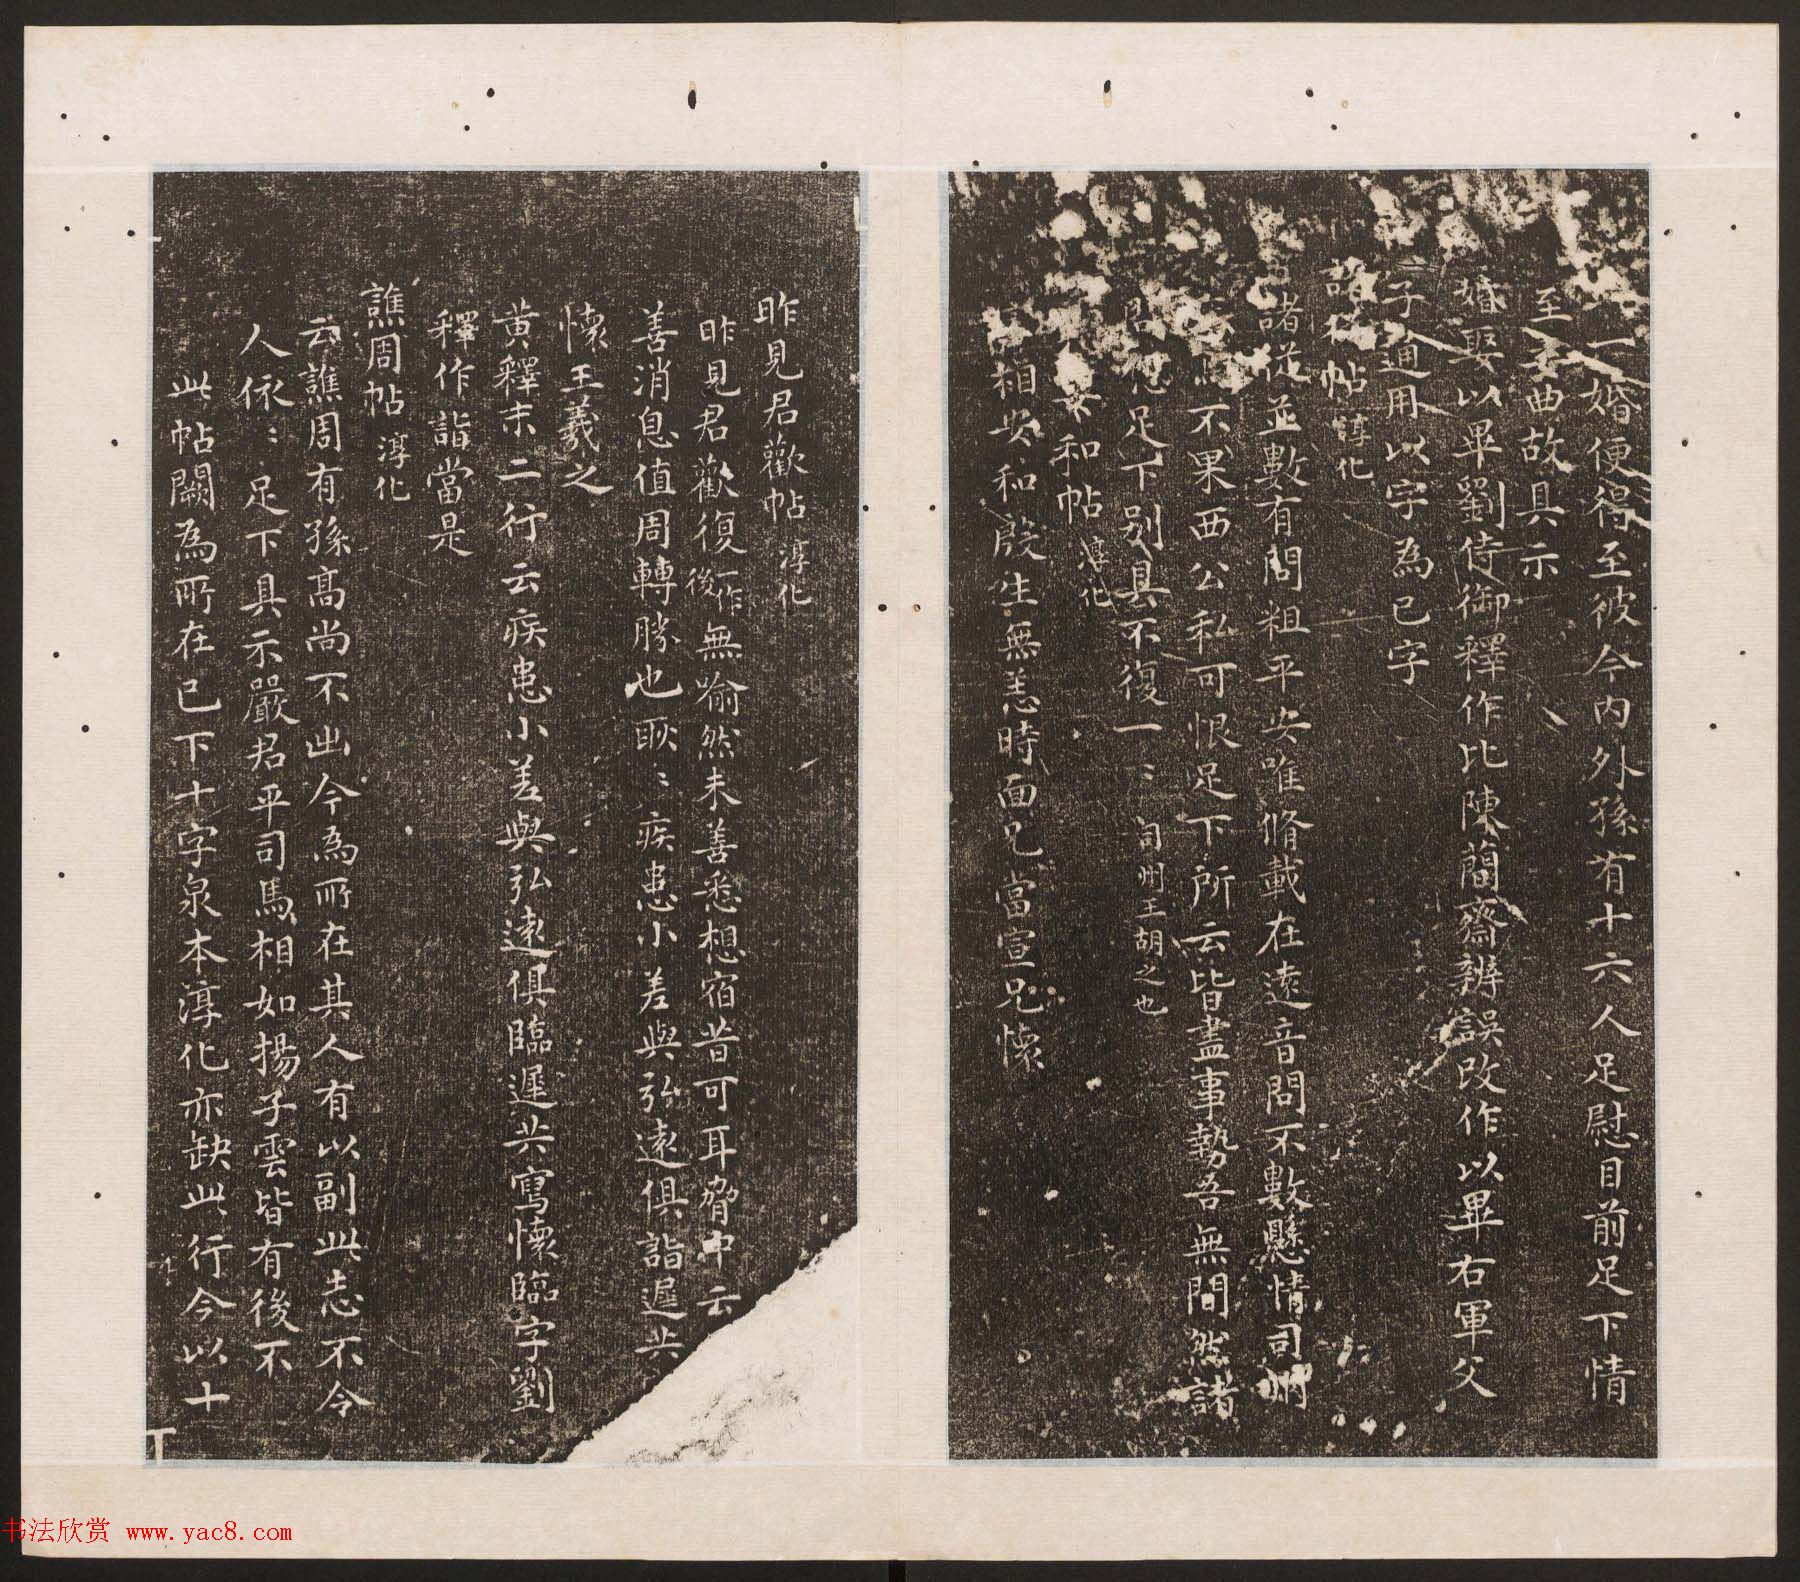 一婚便得至彼今內外孫有十六人足慰目前足下情
至委曲故具示
婚娶以畢劉侍御釋作比陳簡齋辨誤改作以畢右軍父
子通用以字為已字
諸從帖 淳化
諸從並數有問粗平安唯脩載在遠音問不數懸情司州
不果西公私可恨足下所云皆盡事勢吾無間然諸
足下別具不復一〻 司州王胡之也
安和帖 淳化
相安和殷生無恙時面兄當宣兄懷
昨見君歡帖 淳化
昨見君歡復一作後無喻然未善悉想宿昔可耳脅中云
善消息值周轉勝也耿〻疾患小差與弘遠俱詣遲共
懷王羲之
黃釋末二行云疾患小差與弘遠俱臨遲共寫懷臨字劉
釋作詣當是
譙周帖 淳化
云譙周有孫高尚不出今為所在其人有以副此志不令
人依〻足下具示嚴君平司馬相如揚子雲皆有後不
此帖闕為所在已下十字泉本淳化亦缺此行今以十
书法欣赏 www.yac8.com